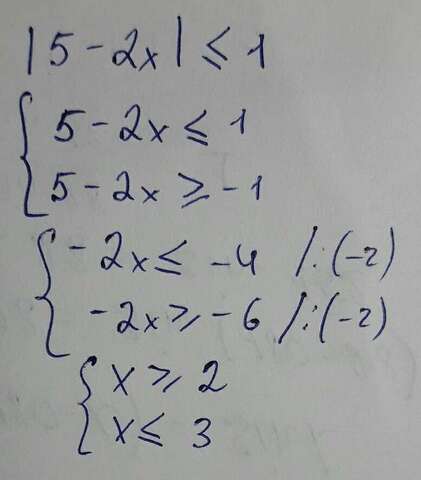 |5-2x| ≤ 1
5-2x ≤ 1
5-2x ≥ -1
-2x ≤ -4 /:(-2)
-2x ≥ -6 /:(-2)
x ≥ 2
x ≤ 3